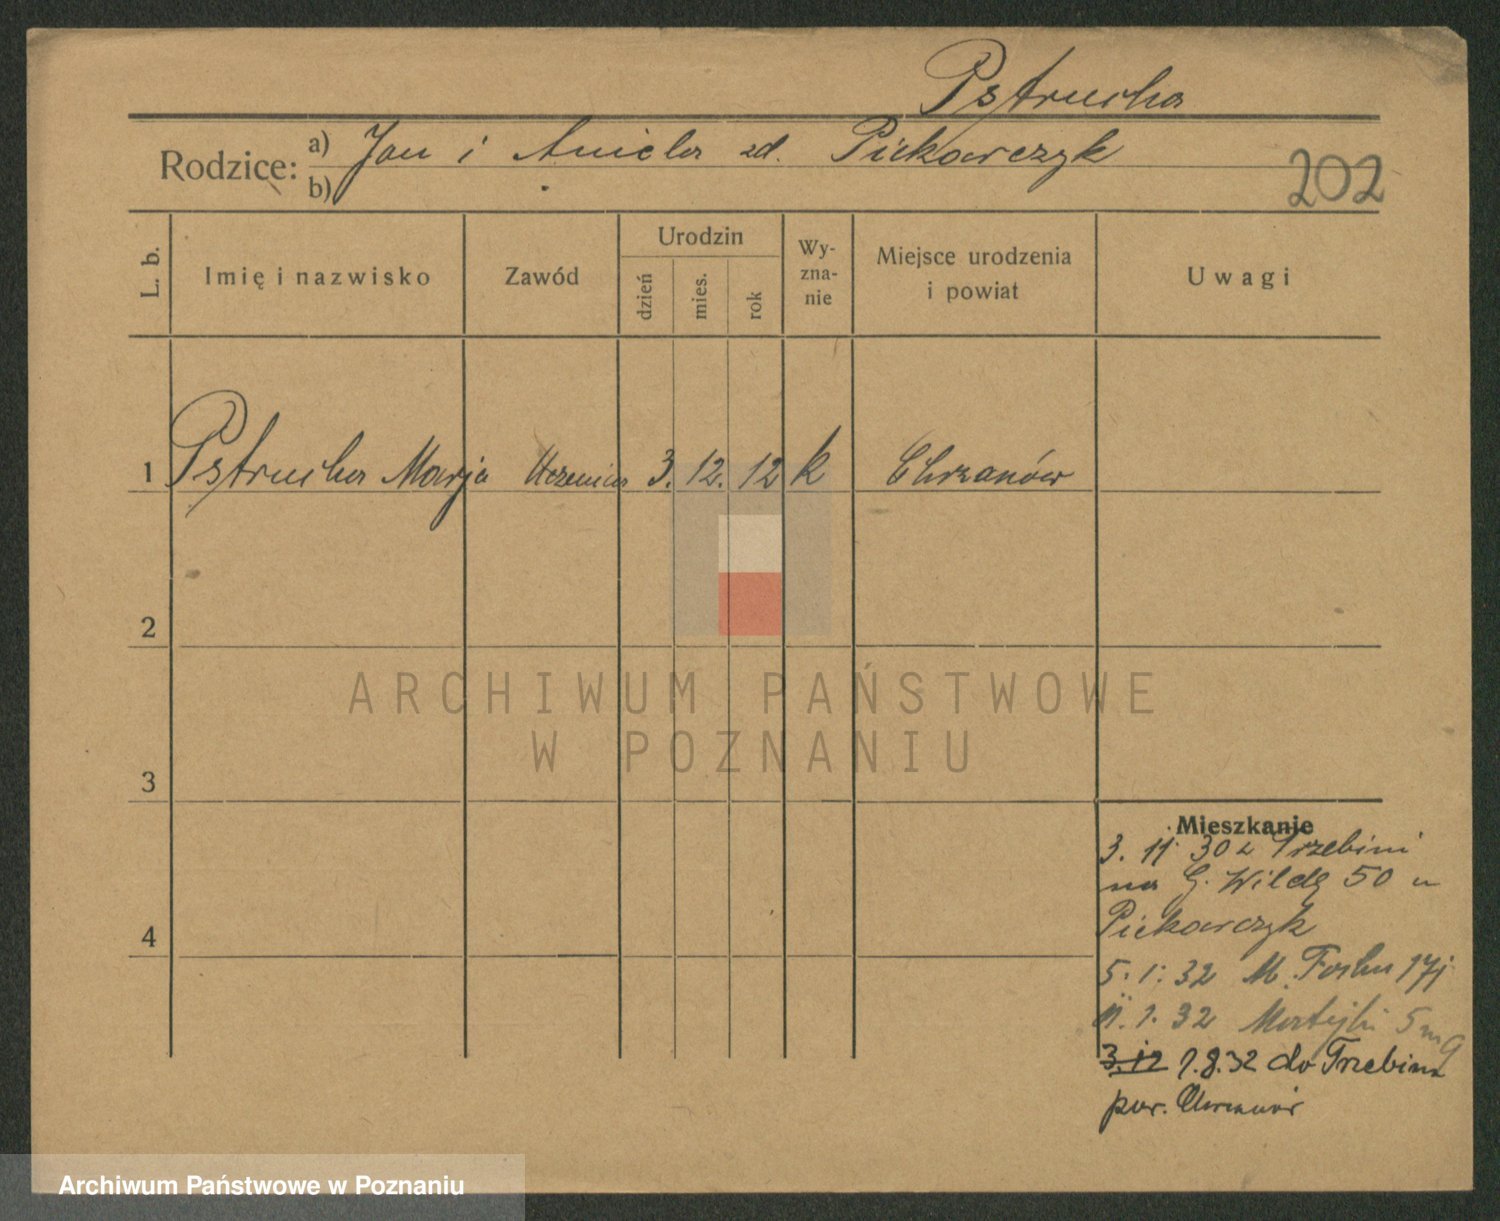 Pstrucha
Rodzice: a) Jan i Aniela zd. Piekarczyk
b)
202
L. b. Imię i nazwisko Zawód Urodzin dzień mies. rok Wy-zna-nie Miejsce urodzenia i powiat Uwagi
1 Pstrucha Marja Uczenica 3. 12. 12 k Chrzanów
2
ARCHIWUM PAŃSTWOWE
W POZNANIU
3
Mieszkanie
3. 11. 30 z Trzebini
na G. Wildę 50 u
Piekarczyk
4
5. 1. 32 M. Focha
1. 32 5
3. 12 1.8.32 do Trzebini
pow. Chrzanów
Archiwum Państwowe w Poznaniu